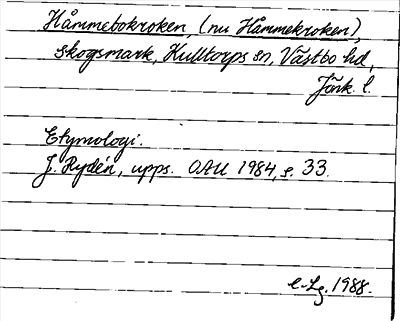 Håmmebokroken, (nu Håmmekroken),
skogsmark, Hulltorps sn, Västbo hd,
Jönk. l.
Etymologi.
J. Rydén, upps. OAU 1984, s. 33.
E-Lg. 1988.